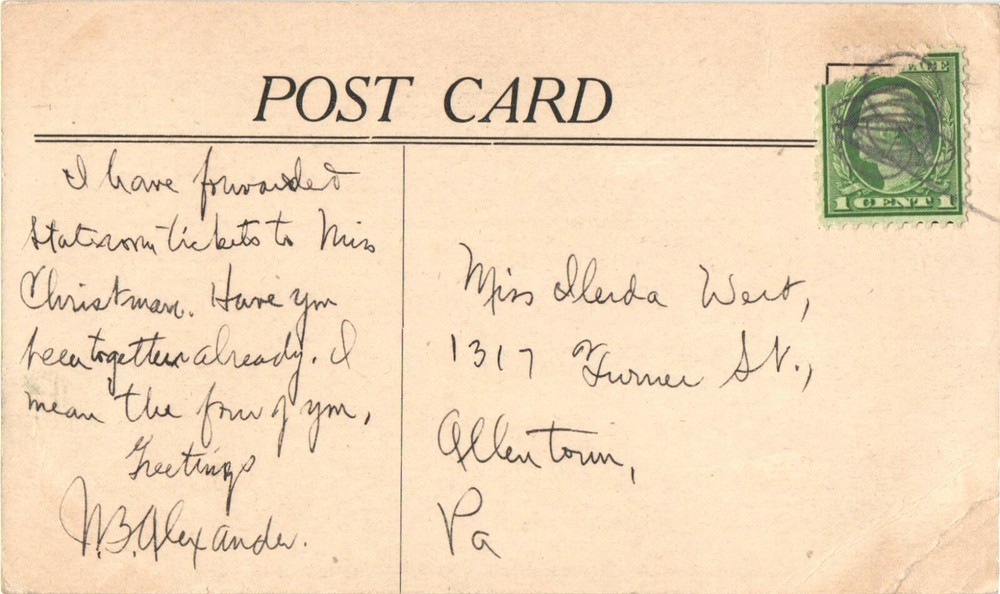 POST CARD
AGE
1 CENT 1
I have forwarded
stateroom tickets to Miss
Christman. Have you
been together already. I
mean the four of you.
Greetings
W.B. Alexander.
Miss Ilerda Wert,
1317 Turner St.,
Allentown,
Pa